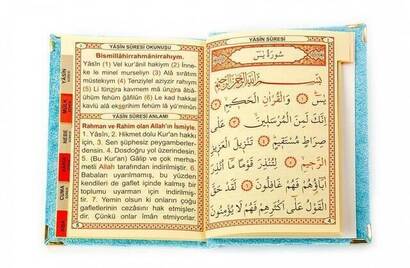 YÂSİN SÛRESİ OKUNUŞU
Bismillâhirrahmânirrahıym.
(1) Yâsîn (2) Vel kur'ânil hakiym (3) İnne-
ke le minel murseliyn (4) Alâ sırâtım
müstekıym (5) Tenziylel aziyzir rahıym
(6) Li tünzira kavmem mâ ünzira âbâ-
ühüm fehüm ğâfilûn (7) Le kad hakkal
kavlü alâ ekserihim fehüm lâ yü'minûn
YÂSİN SÛRESİ ANLAMI
Rahman ve Rahim olan Allah'ın İsmiyle.
1. Yâsîn, 2. Hikmet dolu Kur'an hakkı
için, 3. Sen şüphesiz peygamberler-
densin. 4. Dosdoğru yol üzerindesin.
5. (Bu Kur'an) Gâlip ve çok merha-
metli Allah tarafından indirilmiştir. 6.
Babaları uyarılmamış, bu yüzden
kendileri de gaflet içinde kalmış bir
toplumu uyarman için indirilmiş-
tir. 7. Yemin olsun ki onların çoğu
gafletlerinin cezasını hak etmişler-
dir. Çünkü onlar îmân etmiyorlar.
YÂSİN
MÜLK
NEBE
CUMA
YÂSİN SÛRESİ
سُورَةُ يٰسٓ
بِسْمِ اللّٰهِ الرَّحْمٰنِ الرَّحِيمِ
يٰسٓ ﴿١﴾ وَالْقُرْاٰنِ الْحَكِيمِ ﴿٢﴾
اِنَّكَ لَمِنَ الْمُرْسَلِينَ ﴿٣﴾ عَلٰى
صِرَاطٍ مُسْتَقِيمٍ ﴿٤﴾ تَنْزِيلَ الْعَزِيزِ
الرَّحِيمِ ﴿٥﴾ لِتُنْذِرَ قَوْمًا مَٓا اُنْذِرَ
اٰبَٓاؤُ۬هُمْ فَهُمْ غَافِلُونَ ﴿٦﴾ لَقَدْ حَقَّ
الْقَوْلُ عَلٰٓى اَكْثَرِهِمْ فَهُمْ لَا يُؤْمِنُونَ